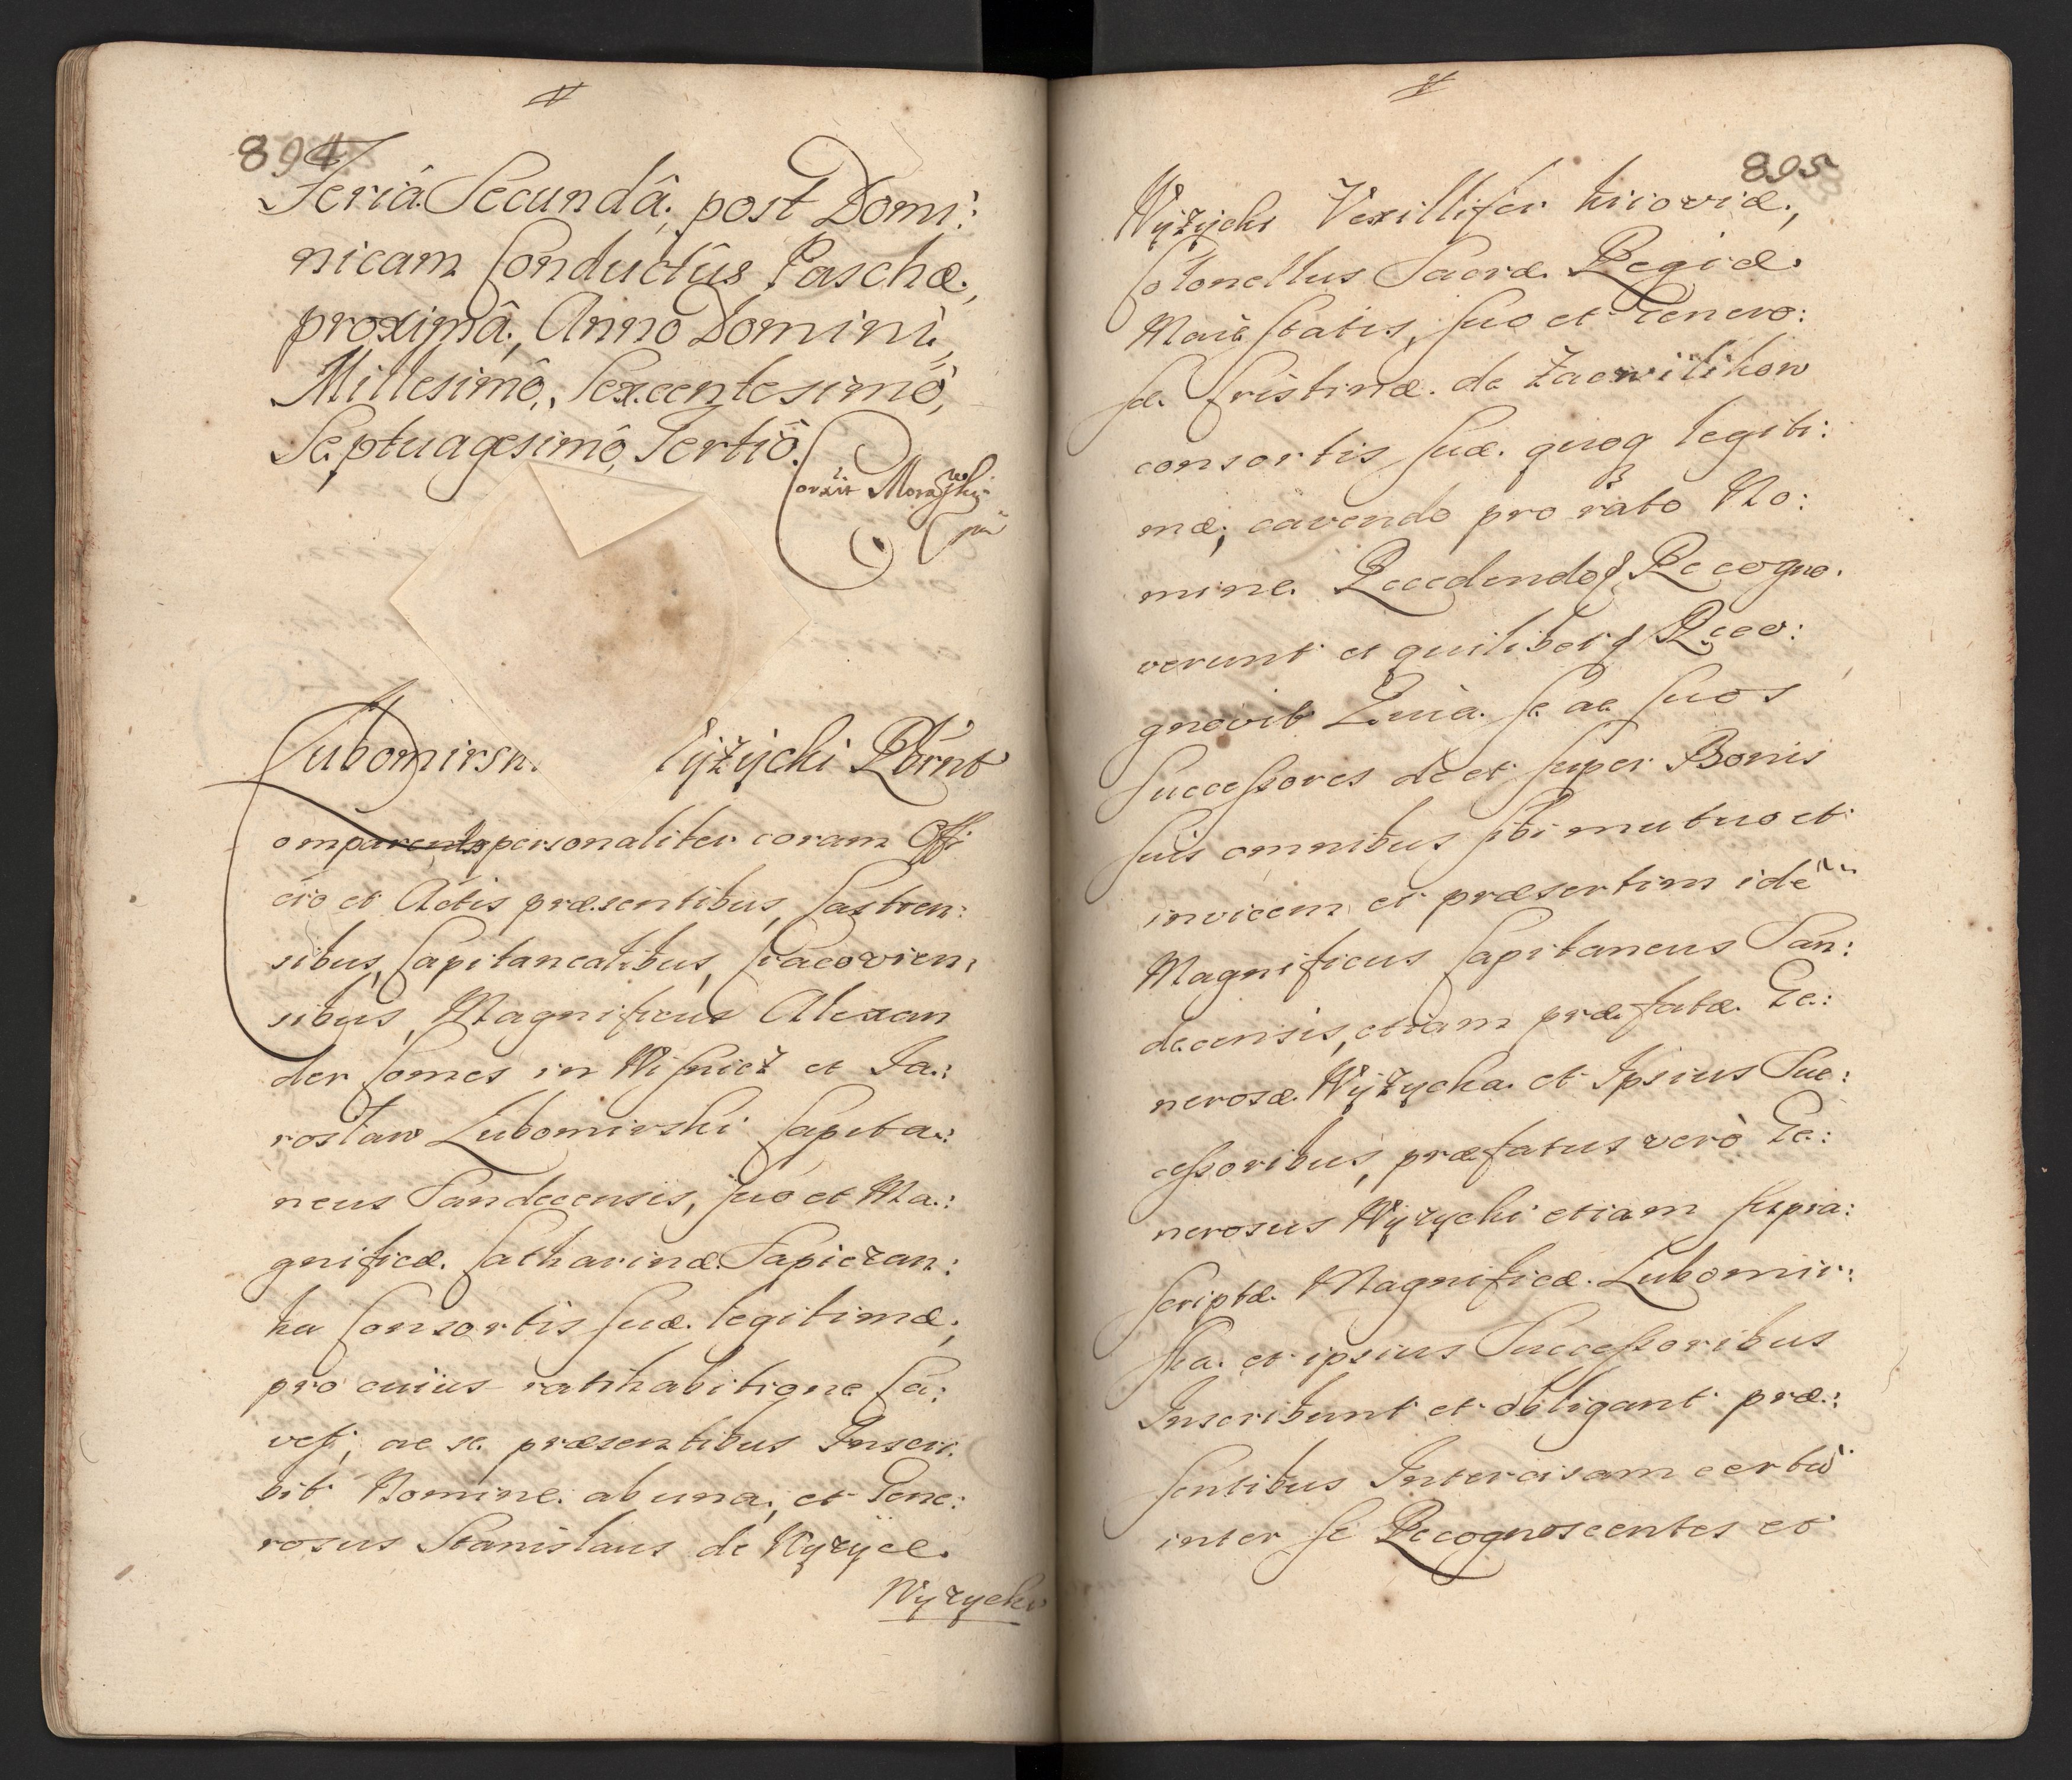 894
Feriâ Secundâ, post Domi:
nicam Conductûs Paschæ,
proximâ, Anno Domini,
Millesimô, Sexcentesimô,
Septuagesimô, Tertiô.
Corxit Morawski
Lubomirski Wÿżÿcki
omparents personaliter coram Offi
cio et Actis præsentibus, Castren:
sibus, Capitanealibus, Cracovien:
sibus, Magnificus Alexan
der Comes in Wisnicz et Ja:
roslaw Lubomirski Capita:
neus Sandecensis, suo et Ma:
gnificæ Catharinæ Sapiezan:
ka Consortis suæ legitimæ,
pro cuius ratihabitione Ca:
vet, ac se præsentibus Inscri
bit Nomine ab una, et Gene:
rosus Stanislaus de Wÿzÿce
Wyzycki
895
Wÿżÿcki Vexillifer Kiioviæ,
Colonellus Sacræ Regiæ
Maiestatis, suo et Genero:
sæ Cristinæ de Zacwilikow
consortis suæ quoq legiti:
mæ, cavendo pro rato No:
mine Recedendo Recogno
verunt et quilibet Reco:
gnovit Quia se ac suos
Successores de et super Bonis
suis omnibus sibi mutuo et
invicem et præsertim idē
Magnificus Capitaneus San:
decensis, etiam præfatæ Ge:
nerosæ Wÿżycka et Ipsius Suc:
cessoribus, præfatus verò Ge:
nerosus Wÿzycki etiam supra:
scriptæ Magnificæ Lubomir:
ska et ipsius Successoribus
Inscribunt et obligant præ:
sentibus Intercisam certā
inter se Recognoscentes et